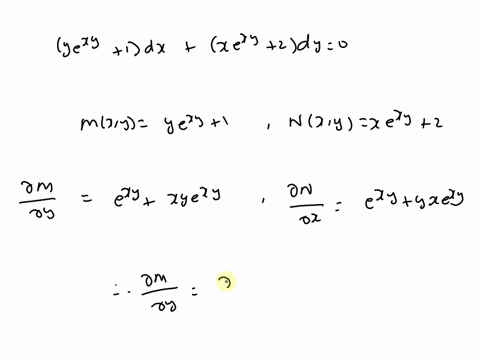 (ye^{xy} +1)dx + (xe^{xy}+2)dy=0
M(x,y)= ye^{xy}+1 , N(x,y)=xe^{xy}+2
∂M/∂y = e^{xy}+ xye^{xy} , ∂N/∂x = e^{xy}+yxe^{xy}
∴ ∂M/∂y = ∂